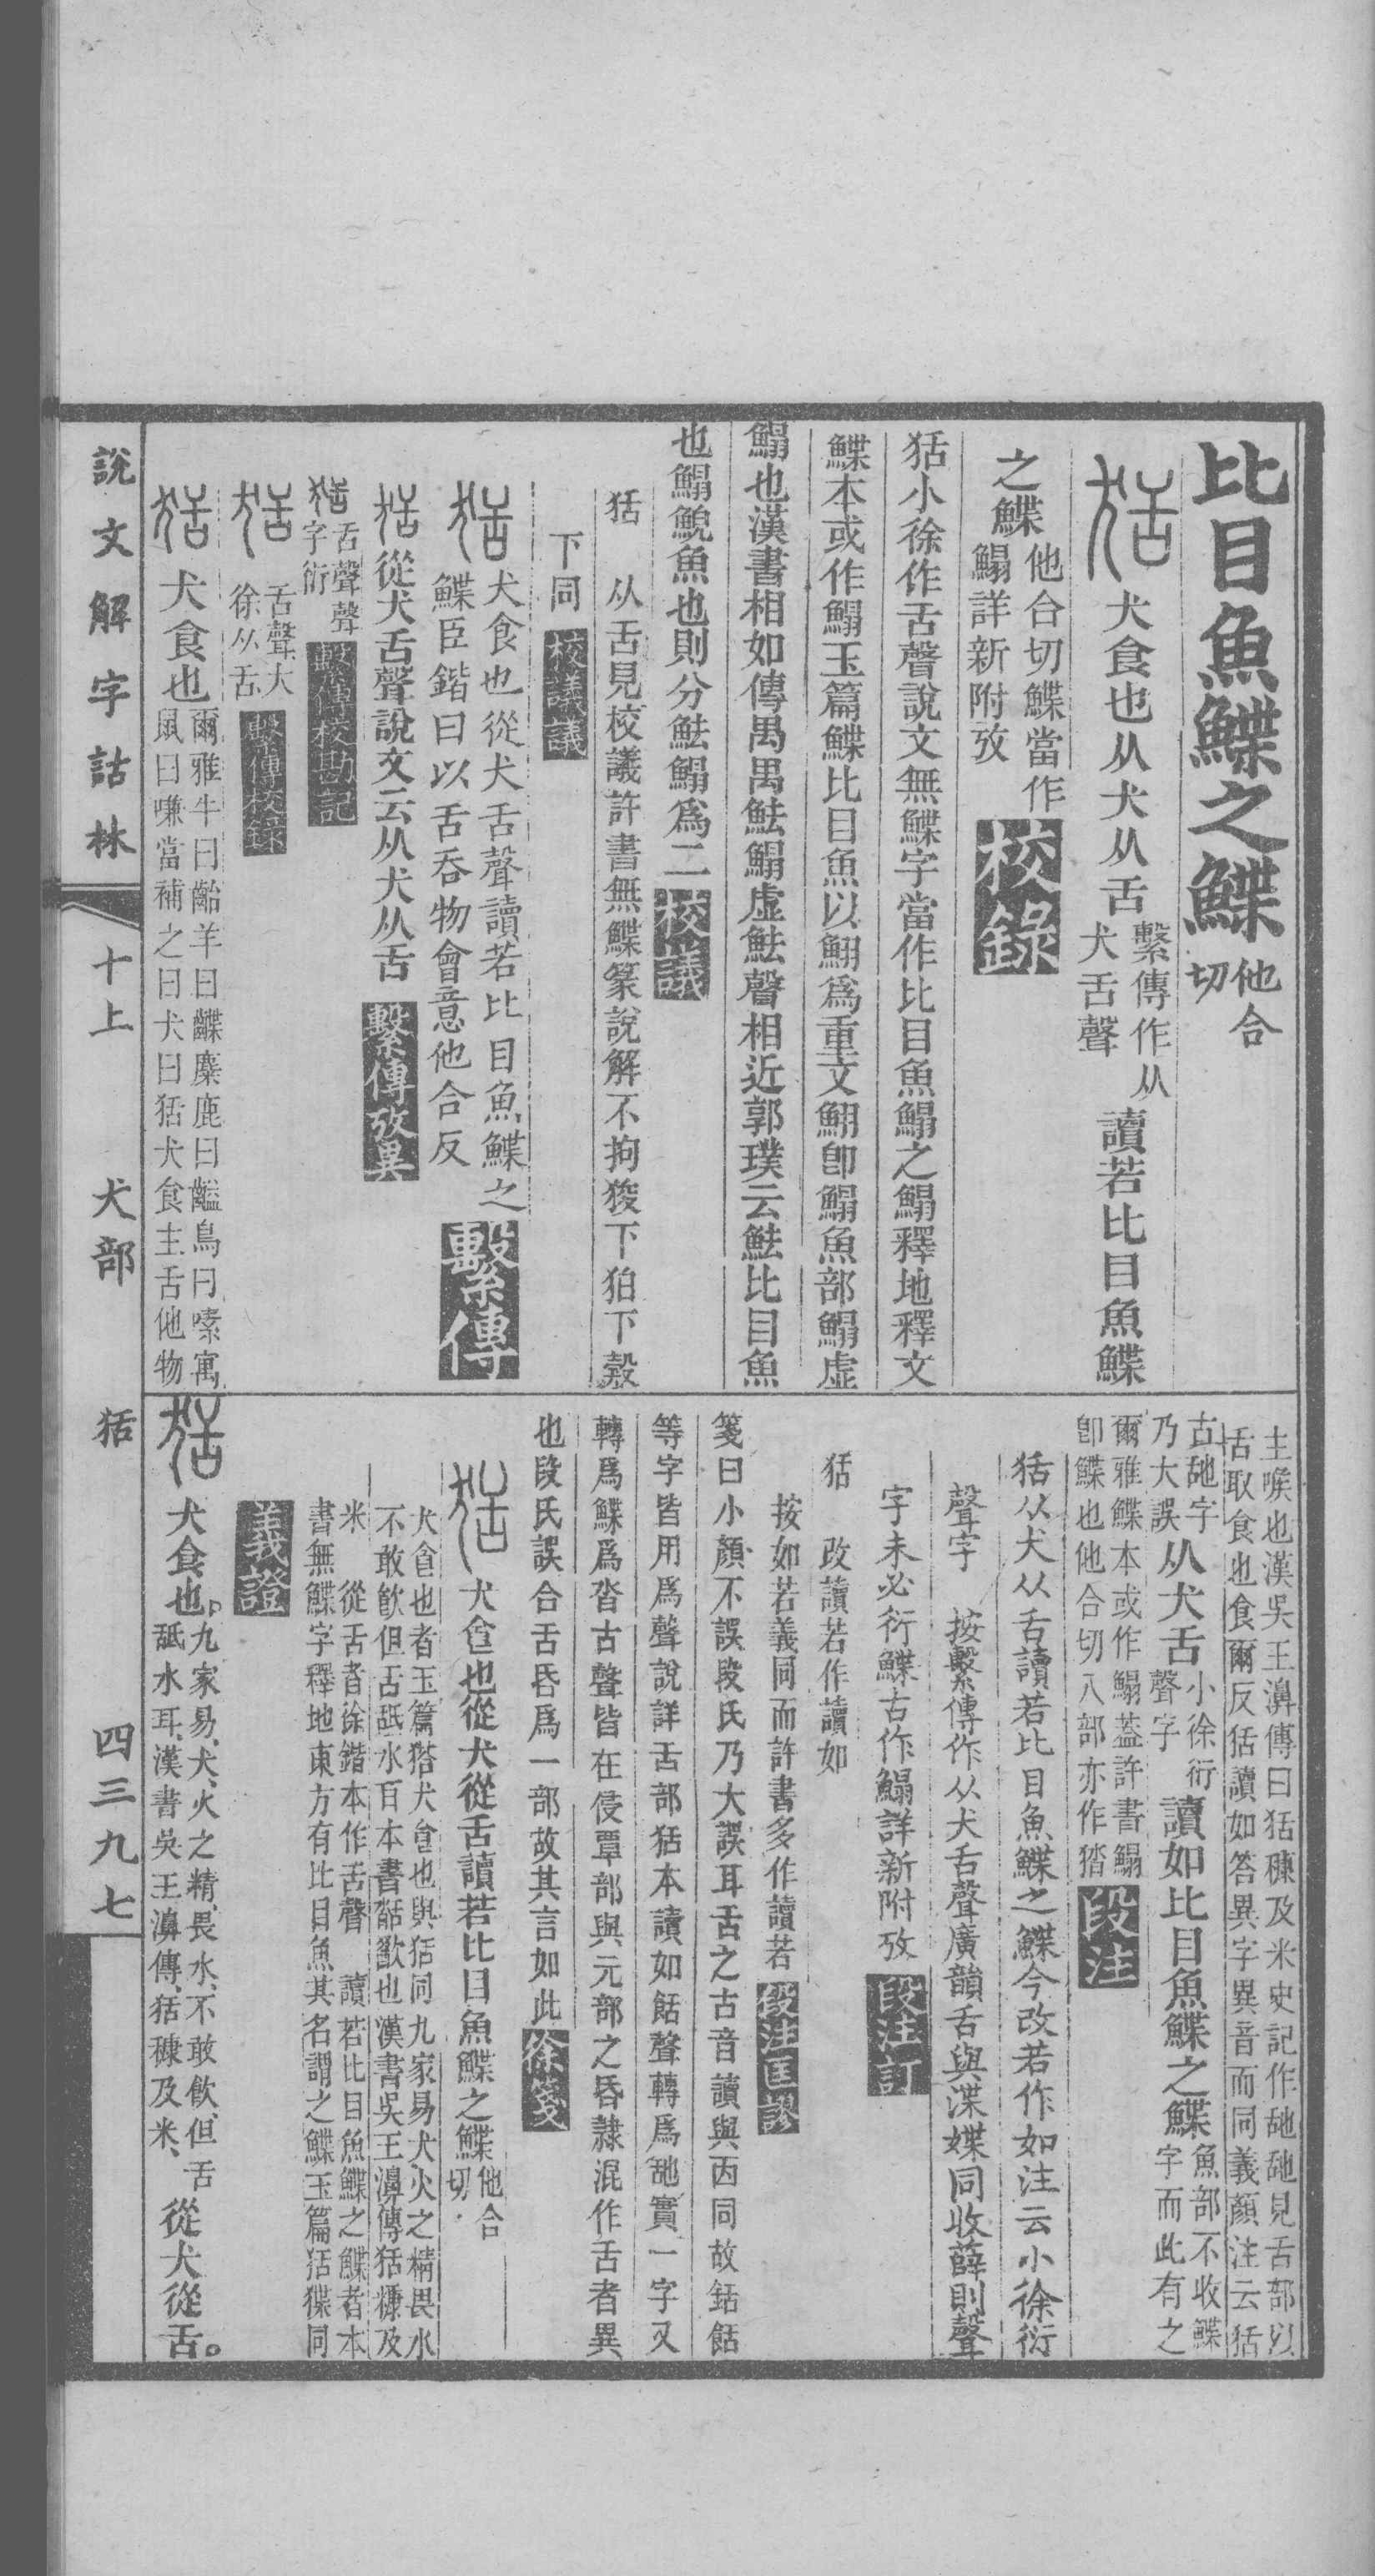 比目魚鰈之鰈他合
切
犬食也从犬从舌繫傳作从
犬舌聲讀若比目魚鰈
之鰈他合切鰈當作
鰨詳新附攷校錄
狧小徐作舌聲說文無鰈字當作比目魚鰨之鰨釋地釋文
鰈本或作鰨玉篇鰈比目魚以魶爲重文魶卽鰨魚部鰨虛
鰨也漢書相如傳禺禺魼鰨虛魼聲相近郭璞云魼比目魚
也鰨鯢魚也則分魼鰨爲二校議
狧 从舌見校議許書無鰈篆說解不拘狻下狛下㺉
下同校議議
犬食也從犬舌聲讀若比目魚鰈之
鰈臣鍇曰以舌吞物會意他合反繫傳
從犬舌聲說文云从犬从舌繫傳攷異
舌聲聲
字衍繫傳校勘記
舌聲大
徐从舌繫傳校錄
犬食也爾雅牛曰齝羊曰齥麋鹿曰齸鳥曰嗉寓
鼠曰嗛當補之曰犬曰狧犬食主舌他物
主喉也漢吳王濞傳曰狧穅及米史記作䑛䑛見舌部以
舌取食也食爾反狧讀如答異字異音而同義顏注云狧
古䑛字
乃大誤从犬舌小徐衍
聲字讀如比目魚鰈之鰈魚部不收鰈
字而此有之
爾雅鰈本或作鰨葢許書鰨
卽鰈也他合切八部亦作狧段注
狧从犬从舌讀若比目魚鰈之鰈今改若作如注云小徐衍
聲字 按繫傳作从犬舌聲廣韻舌與渫媟同收薛則聲
字未必衍鰈古作鰨詳新附攷段注訂
狧 改讀若作讀如
按如若義同而許書多作讀若段注匡謬
箋曰小顏不誤段氏乃大誤耳舌之古音讀與㐁同故銛餂
等字皆用爲聲說詳舌部狧本讀如餂聲轉爲䑛實一字又
轉爲鰈爲沓古聲皆在侵覃部與元部之昏隸混作舌者異
也段氏誤合舌昏爲一部故其言如此徐箋
犬食也從犬從舌讀若比目魚鰈之鰈他合
切
犬食也者玉篇㺚犬食也與狧同九家易犬火之精畏水
不敢飮但舌䑛水百本書㗖歠也漢書吳王濞傳狧穅及
米 從舌者徐鍇本作舌聲 讀若比目魚鰈之鰈者本
書無鰈字釋地東方有比目魚其名謂之鰈玉篇狧㹙同
義證
犬食也。九家易、犬、火之精、畏水、不敢飮、但舌
䑛水耳、漢書吳王濞傳、狧穅及米、從犬從舌。
說文解字詁林 十上 犬部 狧 四三九七